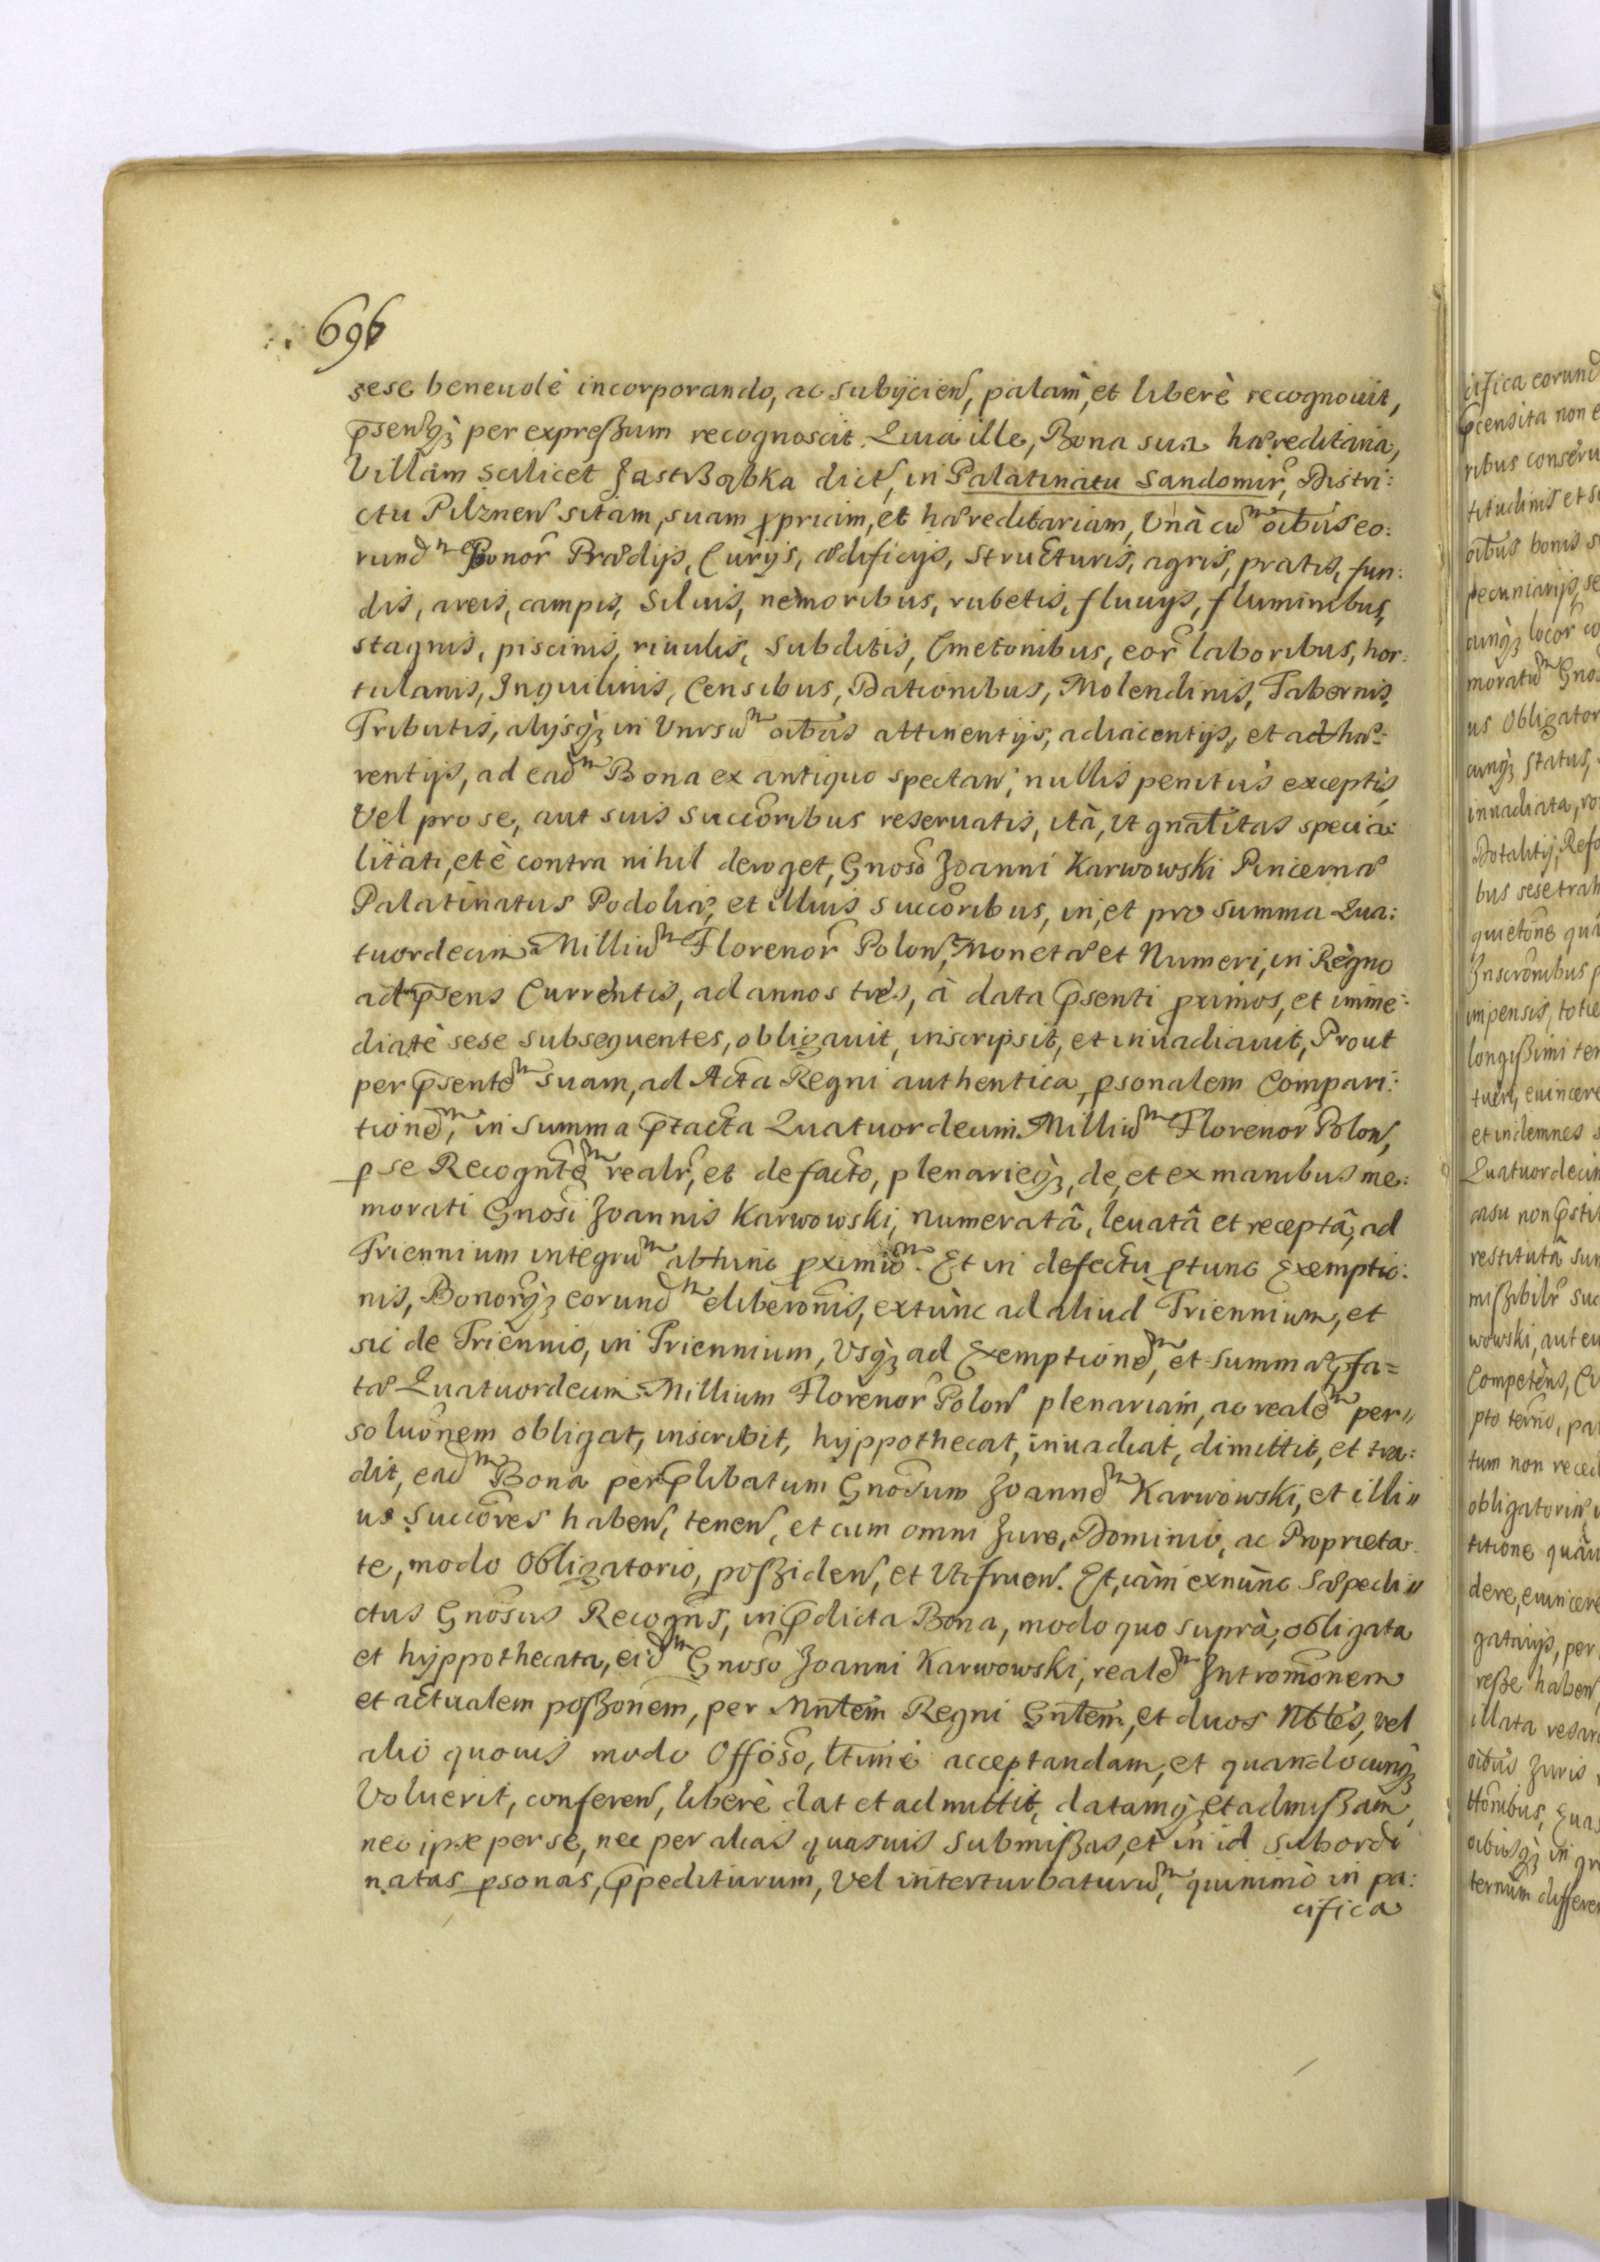 696
sese beneuolè incorporando, ac subÿcien, palàm, et liberè recognouit,
p̄senq̀ʒ per expreßum recognoscit. Quia ille, Bona sua hæreditaria,
Villam scilicet Jastrząbka dict, in Palatinatu Sandomir, Distri:
ctu Pilznen sitam, suam ꝓpriam, et hæreditariam, Vnà cū oībus eo:
rund Bonor Prædijs, Curijs, ædificijs, structuris, agris, pratis, fun:
dis, areis, campis, Siluis, nemoribus, rubetis, fluuijs, fluminibus,
stagnis, piscinis, riuulis, Subditis, Cmetonibus, eor laboribus, hor:
tulanis, Inquilinis, Censibus, Dationibus, Molendinis, Tabernis,
Tributis, alijsq̀ʒ in Vnrsū oībus attinentijs, adiacentijs, et adhæ:
rentijs, ad ead Bona ex antiquo spectan, nullis penitùs exceptis,
Vel pro se, aut suis succoribus reseruatis, ità, Vt gnalitas specia:
litati, et è contra nihil deroget, Gnoso Joanni Karwowski Pincernæ
Palatinatus Podoliæ, et illius succoribus, in, et pro summa Qua:
tuordecim Milliū Florenor Polon, Monetæ et Numeri, in Regno
ad p̄sens Currentis, ad annos tres, à data p̄senti ꝓximos, et imme:
diatè sese subsequentes, obligauit, inscripsit, et inuadiauit, Prout
per p̄sente suam, ad Acta Regni authentica, ꝑsonalem Compari:
tione, in summa p̄tacta Quatuordecim Milliū Florenor Polon,
ꝑ se Recognte realr, et de facto, plenarieq̀ʒ, de, et ex manibus me:
morati Gnosi Joannis Karwowski, numeratâ, leuatâ et receptâ, ad
Triennium integrū abtunc ꝓximū. Et in defectu ꝓtunc Exemptio:
nis, Bonorq̀ʒ eorund eliberonis, extunc ad aliud Triennium, et
sic de Triennio, in Triennium, Vsq̀ʒ ad Exemptione, et summæ p̄fa=
tæ Quatuordecim Millium Florenor Polon plenariam, ac reale per"
soluonem obligat, inscribit, hyppothecat, inuadiat, dimittit, et tra:
dit, ead Bona per p̄libatum Gnosum Joanne Karwowski, et illi"
us succores haben, tenen, et cum omni Jure, Dominio, ac Proprieta:
te, modo Obligatorio, poßiden, et Vtifruen. Et iàm exnùnc Sæpedi"
ctus Gnosus Recogns, in p̄dicta Bona, modo quo suprà, obligata
et hyppothecata, eid Gnoso Joanni Karwowski, reale Intromonem
et actualem poßonem, per Mntem Regni Gnlem, et duos Nbles, vel
alio quouis modo Offoso, ltimè acceptandam, et quandocunq̀ʒ
Voluerit, conferen, liberè dat et admittit, datamq̀ʒ, et admißam,
nec ipse per se, nec per alias quasuis submißas, et in id subordi
natas ꝑsonas, p̄pediturum, Vel interturbaturū, quinimò in pa:
cifica